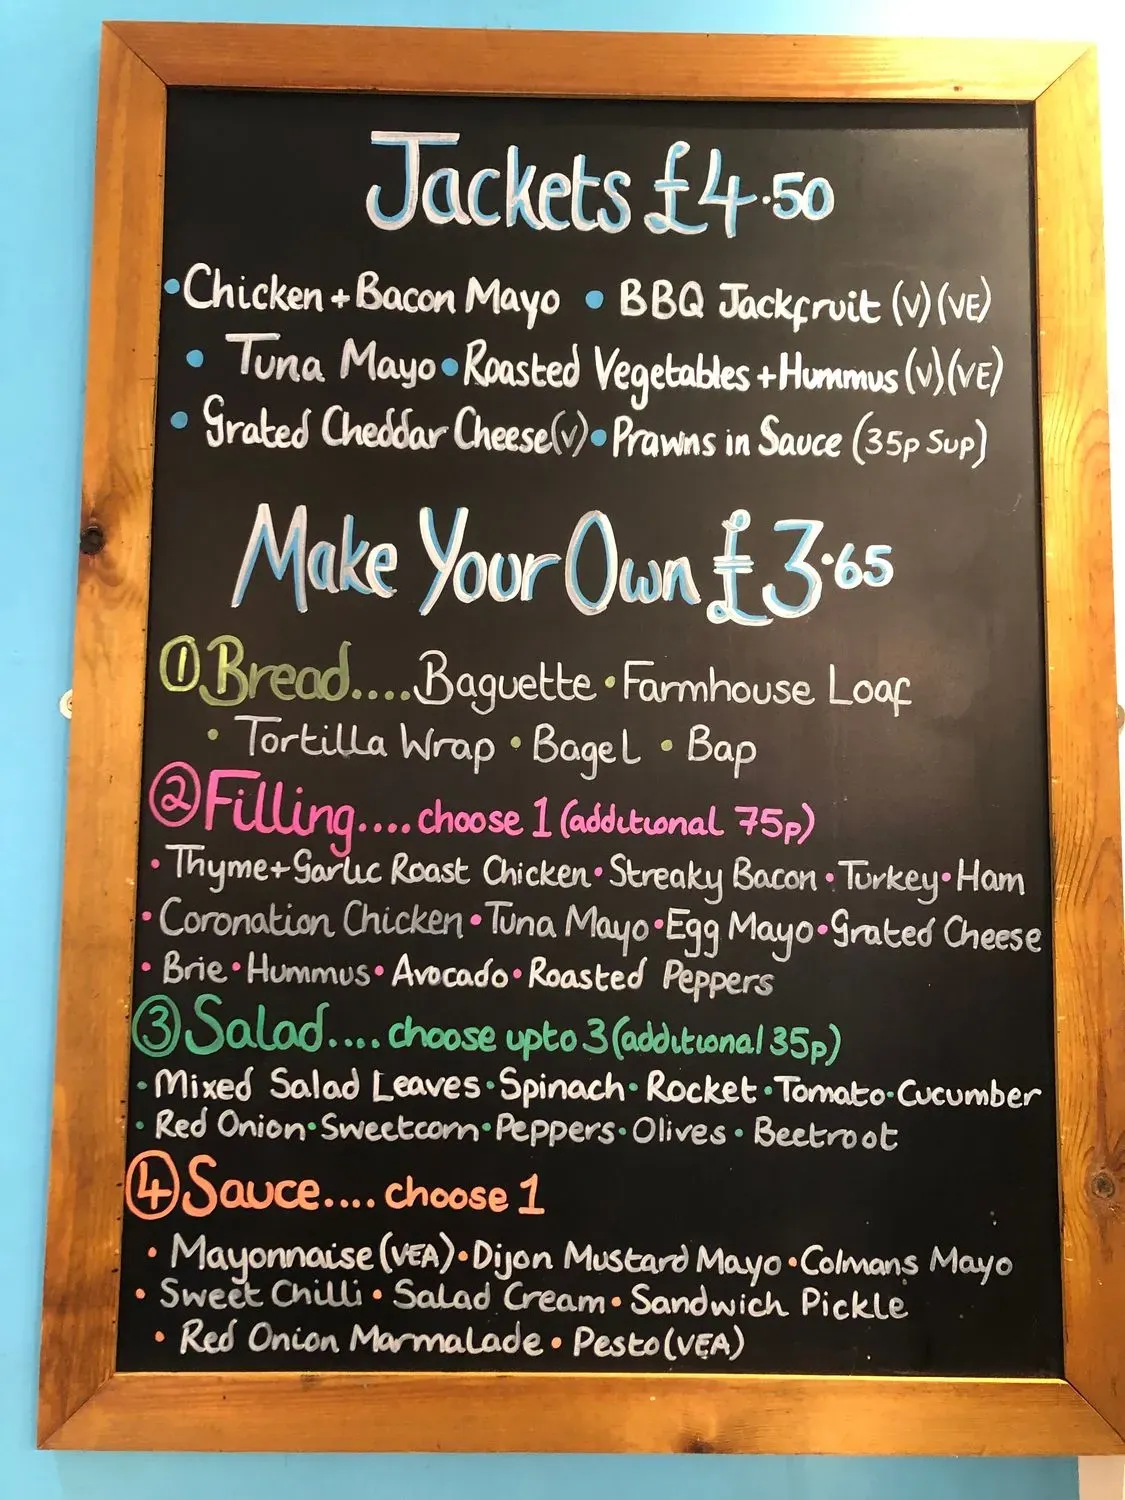 Jackets £4.50
• Chicken + Bacon Mayo • BBQ Jackfruit (V) (VE)
• Tuna Mayo • Roasted Vegetables + Hummus (V) (VE)
• Grated Cheddar Cheese (V) • Prawns in Sauce (35p Sup)
Make Your Own £3.65
① Bread.... Baguette • Farmhouse Loaf
• Tortilla Wrap • Bagel • Bap
② Filling.... choose 1 (additional 75p)
• Thyme + Garlic Roast Chicken • Streaky Bacon • Turkey • Ham
• Coronation Chicken • Tuna Mayo • Egg Mayo • Grated Cheese
• Brie • Hummus • Avocado • Roasted Peppers
③ Salad.... choose upto 3 (additional 35p)
• Mixed Salad Leaves • Spinach • Rocket • Tomato • Cucumber
• Red Onion • Sweetcorn • Peppers • Olives • Beetroot
④ Sauce.... choose 1
• Mayonnaise (VEA) • Dijon Mustard Mayo • Colmans Mayo
• Sweet Chilli • Salad Cream • Sandwich Pickle
• Red Onion Marmalade • Pesto (VEA)